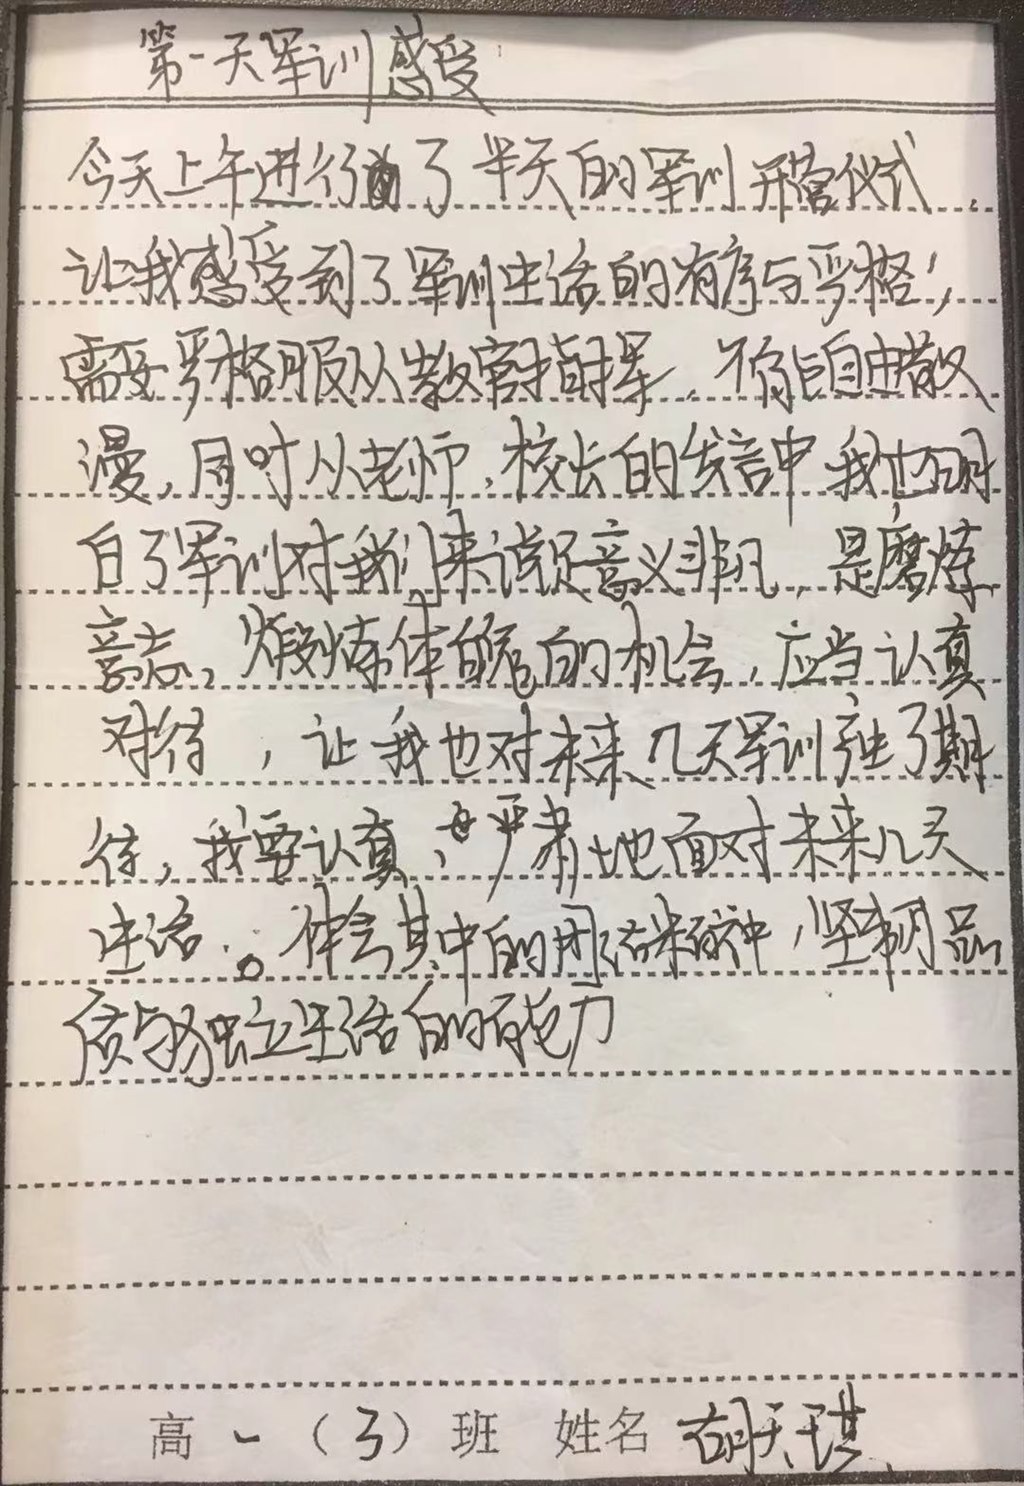 第一天军训感受
今天上午进行了半天的军训开营仪式,
让我感受到了军训生活的有序与严格,
需要严格服从教官指挥,不能自由散
漫,同时从老师,校长的发言中我也明
白了军训对我们来说是意义非凡,是磨炼
意志、煅炼体魄的机会,应当认真
对待,让我也对未来几天军训产生了期
待,我要认真、严肃地面对未来几天
生活。体会其中的团结精神,坚韧品
质与独立生活的能力
高一(3)班 姓名 胡天琪